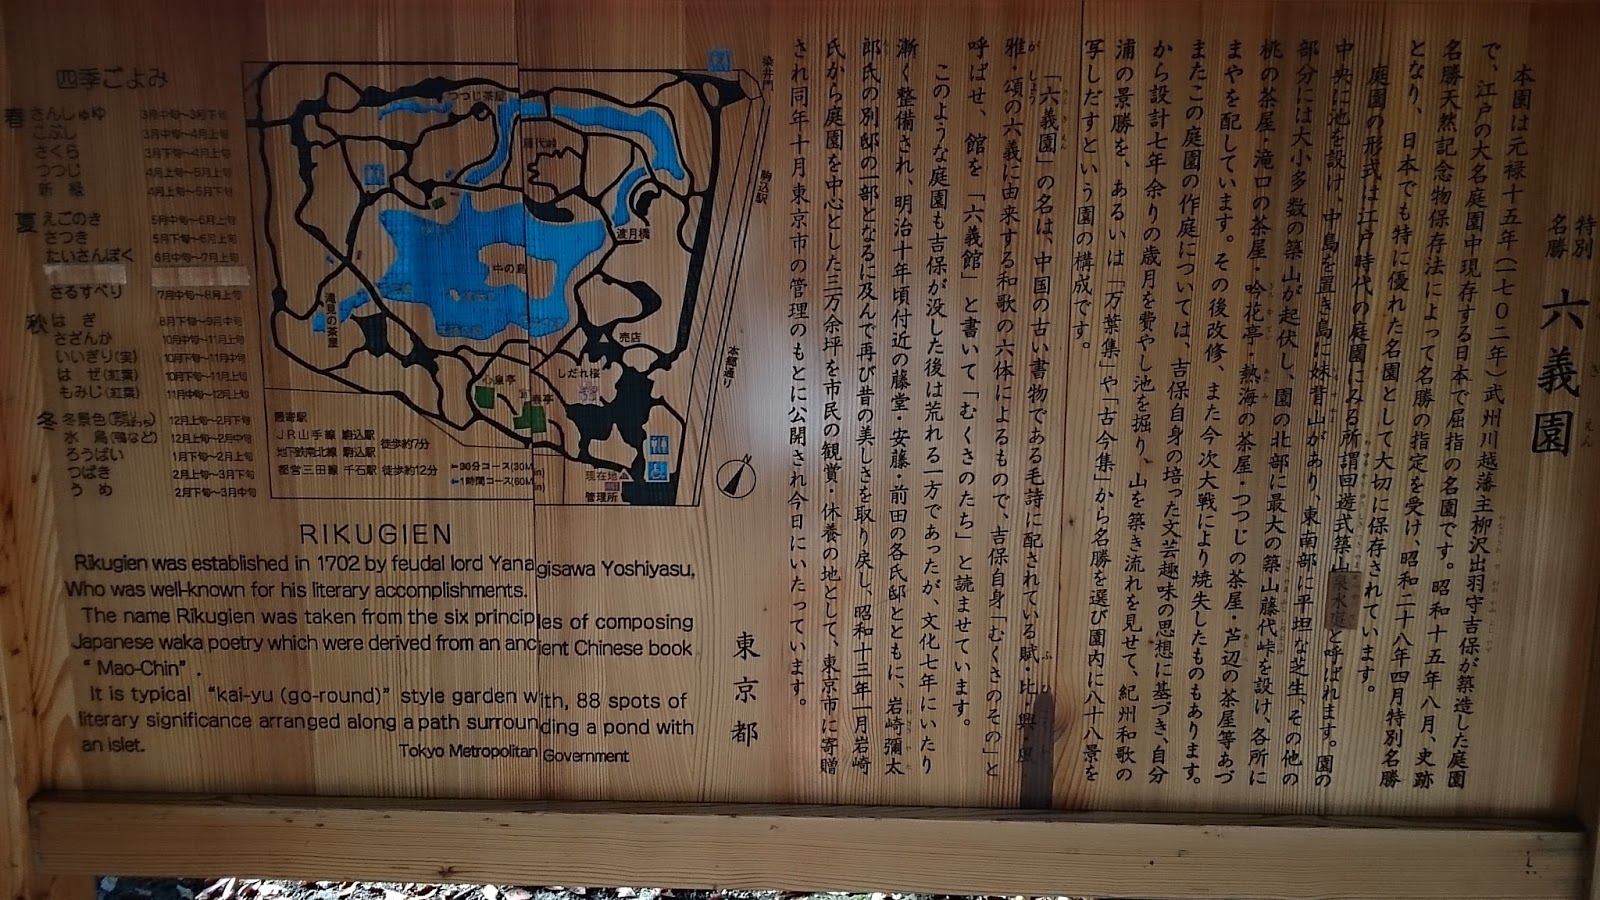 特別名勝 六義園
本園は元禄十五年(一七〇二年)武州川越藩主柳沢出羽守吉保が築造した庭園
で、江戸の大名庭園中現存する日本で屈指の名園です。昭和十五年八月、史跡
名勝天然記念物保存法によって名勝の指定を受け、昭和二十八年四月特別名勝
となり、日本でも特に優れた名園として大切に保存されています。
庭園の形式は江戸時代の庭園にみる所謂回遊式築山泉水庭と呼ばれます。園の
中央に池を設け、中島を置き島に妹背山があり、東南部に平坦な芝生、その他の
部分には大小多数の築山が起伏し、園の北部に最大の築山藤代峠を設け、各所に
桃の茶屋・滝口の茶屋・吟花亭・熱海の茶屋・つつじの茶屋・芦辺の茶屋等あづ
まやを配しています。その後改修、また今次大戦により焼失したものもあります。
またこの庭園の作庭については、吉保自身の培った文芸趣味の思想に基づき、自分
から設計七年余りの歳月を費やし池を掘り、山を築き流れを見せて、紀州和歌の
浦の景勝を、あるいは「万葉集」や「古今集」から名勝を選び園内に八十八景を
写しだすという園の構成です。
「六義園」の名は、中国の古い書物である毛詩に配されている賦・比・興・風
雅・頌の六義に由来する和歌の六体によるもので、吉保自身「むくさのその」と
呼ばせ、館を「六義館」と書いて「むくさのたち」と読ませています。
このような庭園も吉保が没した後は荒れる一方であったが、文化七年にいたり
漸く整備され、明治十年頃付近の藤堂・安藤・前田の各氏邸とともに、岩崎彌太
郎氏の別邸の一部となるに及んで再び昔の美しさを取り戻し、昭和十三年一月岩崎
氏から庭園を中心とした三万余坪を市民の観賞・休養の地として、東京市に寄贈
され同年十月東京市の管理のもとに公開され今日にいたっています。
東京都
四季ごよみ
春 さんしゅゆ 3月中旬〜3月下旬
こぶし 3月中旬〜4月上旬
さくら 3月下旬〜4月上旬
つつじ 4月上旬〜5月上旬
新緑 4月上旬〜5月下旬
夏 えごのき 5月中旬〜6月上旬
さつき 5月下旬〜6月上旬
たいさんぼく 6月中旬〜7月上旬
さるすべり 7月中旬〜8月上旬
秋 はぎ 8月下旬〜9月中旬
さざんか 10月中旬〜11月上旬
いいぎり(実) 10月下旬〜11月中旬
はぜ(紅葉) 10月下旬〜11月上旬
もみじ(紅葉) 11月中旬〜12月上旬
冬 冬景色 12月上旬〜2月下旬
水鳥(鴨など) 12月上旬〜2月中旬
ろうばい 1月下旬〜2月上旬
つばき 2月上旬〜3月下旬
うめ 2月下旬〜3月中旬
染井門
つつじ茶屋
藤代峠
駒込駅
渡月橋
中の島
滝見の茶屋
売店
本郷通り
しだれ桜
心泉亭
宜春亭
最寄駅
JR山手線 駒込駅
地下鉄南北線 駒込駅
徒歩約7分
都営三田線 千石駅 徒歩約12分
30分コース(30Min)
1時間コース(60Min)
現在地
管理所
N
RIKUGIEN
Rikugien was established in 1702 by feudal lord Yanagisawa Yoshiyasu,
Who was well-known for his literary accomplishments.
The name Rikugien was taken from the six principles of composing
Japanese waka poetry which were derived from an ancient Chinese book
“ Mao-Chin” .
It is typical “kai-yu (go-round)” style garden with, 88 spots of
literary significance arranged along a path surrounding a pond with
an islet.
Tokyo Metropolitan Government